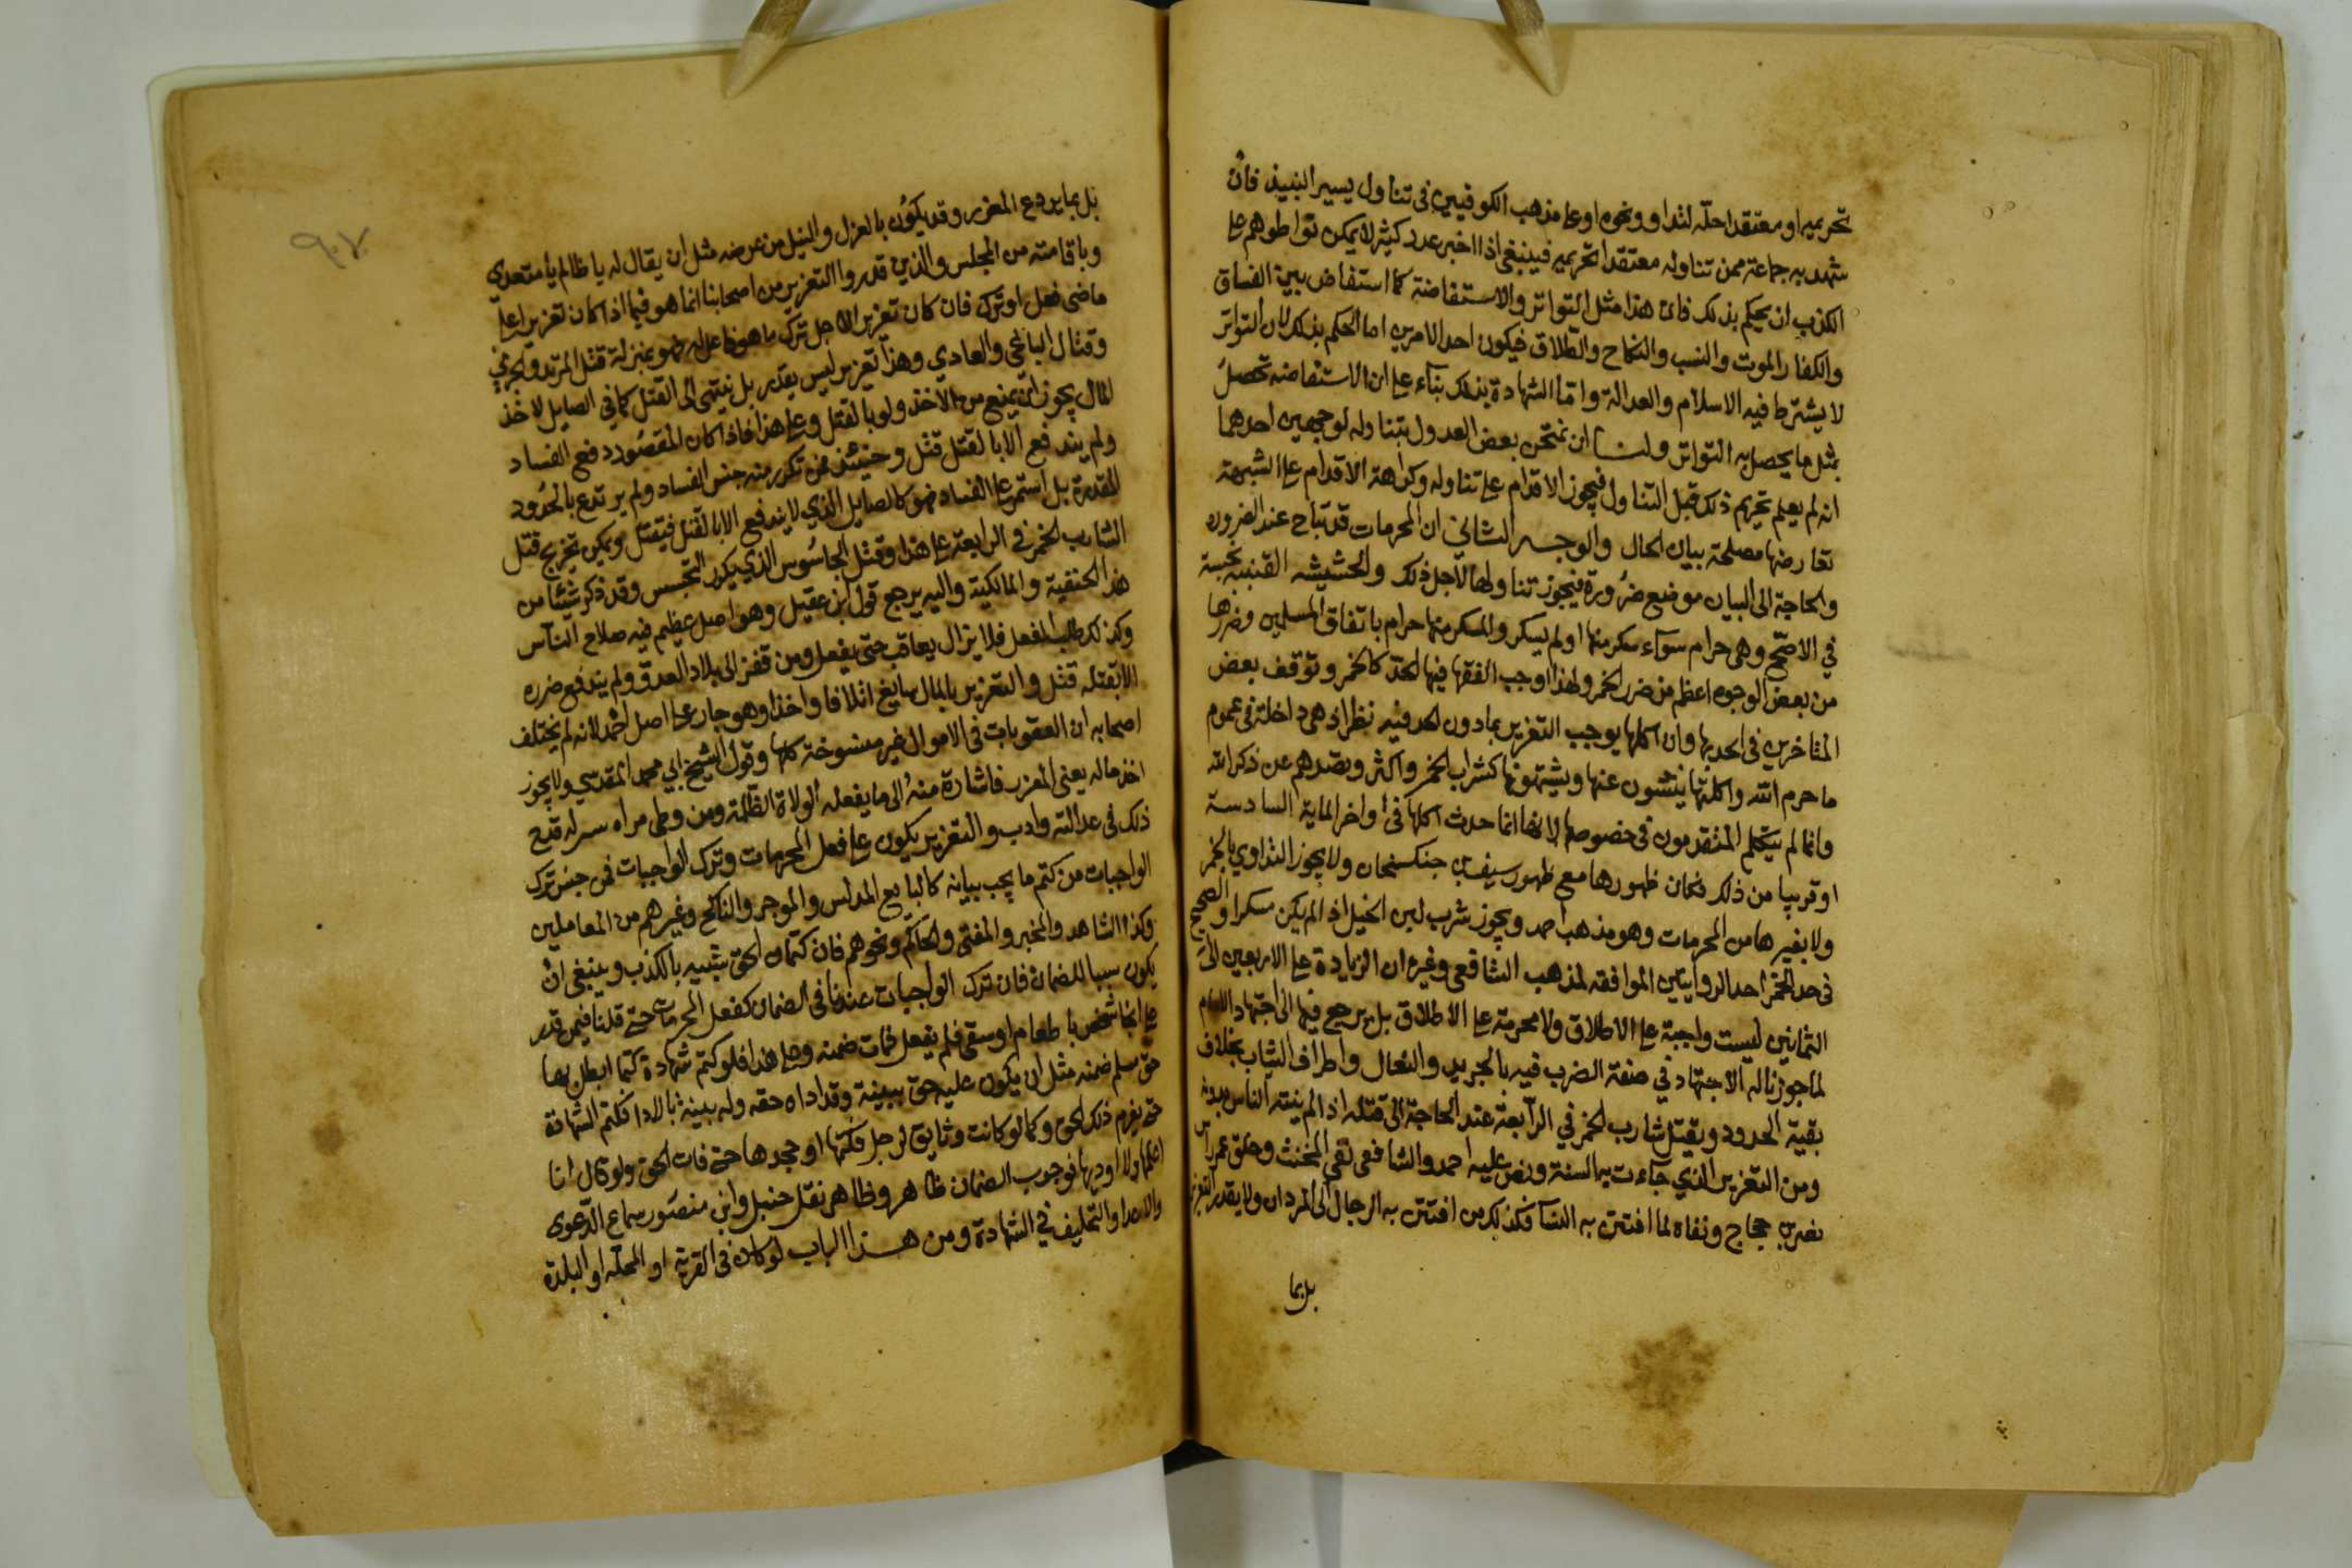 تحريمه او معتقدا حله لتداو ونحوه او على مذهب الكوفيين في تناول يسير النبيذ فان
شهد به جماعة ممن تناوله معتقدا تحريمه فينبغي اذا اخبر عدد كثير لا يمكن تواطوهم على
الكذب ان يحكم بذلك فان هذا مثل التواتر والاستفاضة كما استفاض بين الفساق
والكفار الموت والنسب والنكاح والطلاق فيكون احد الامرين اما الحكم بذلك لان التواتر
لا يشترط فيه الاسلام والعدالة واما الشهادة بذلك بناء على ان الاستفاضه تحصل
بمثل ما يحصل به التواتر ولنا ان نمتحن بعض العدول بتناوله لوجهين احدهما
انه لم يعلم تحريم ذلك قبل التناول فيجوز الاقدام على تناوله وكراهة الاقدام على الشبهة
تعارضها مصلحة بيان الحال والوجه الثاني ان المحرمات قد تباح عند الضروره
والحاجة الى البيان موضع ضرورة فيجوز تناولها لاجل ذلك والحشيشه القنبيه نجسة
في الاصح وهي حرام سواء سكر منها او لم يسكر والمسكر منها حرام باتفاق المسلمين وضررها
من بعض الوجوه اعظم من ضرر الخمر ولهذا اوجب الفقها فيها الحد كالخمر وتوقف بعض
المتاخرين في الحد بها وان اكلها يوجب التعزير بما دون الحد فيه نظر اذ هي داخلة في عموم
ما حرم الله واكلتها ينتشون عنها ويشتهونها كشراب الخمر واكثر وتصدهم عن ذكر الله
وانما لم يتكلم المتقدمون في خصوصها لانها انما حدث اكلها في اواخر الماية السادسة
او قريبا من ذلك فكان ظهورها مع ظهور سيف جنكسخان ولا يجوز التداوي بالخمر
ولا بغيرها من المحرمات وهو مذهب احمد ويجوز شرب لبن الخيل اذا لم يكن مسكرا والصحيح
في حد الخمر احد الروايتين الموافقه لمذهب الشافعي وغيره ان الزيادة على الاربعين الى
الثمانين ليست واجبة على الاطلاق ولا محرمة على الاطلاق بل يرجع فيها الى اجتهاد الامام
كما جوزنا له الاجتهاد في صفة الضرب فيه بالجريد والنعال واطراف الثياب بخلاف
بقية الحدود ويقتل شارب الخمر في الرابعة عند الحاجة الى قتله اذا لم ينته الناس بدونه
ومن التعزير الذي جاءت به السنة ونص عليه احمد والشافعي نفي المخنث وحلق عمر راس
نصر بن حجاج ونفاه لما افتتن به النسا فكذلك من افتتن به الرجال الى المردان ولا يقدر التعزير
بل بما
٩٠٧
بل بما يردع المعزر وقد يكون بالعزل والنيل من عرضه مثل ان يقال له يا ظالم يا متعدي
وباقامته من المجلس والذين قدروا التعزير من اصحابنا انما هو فيما اذا كان تعزيرا على
ماضي فعل او ترك فان كان تعزيرا لاجل ترك ما هو فاعل له فهو بمنزلة قتل المرتد والحربي
وقتال الباغي والعادي وهذا تعزير ليس يقدر بل ينتهي الى القتل كما في الصايل لاخذ
المال يجوز ان يمنع من الاخذ ولو بالقتل وعلى هذا فاذا كان المقصود دفع الفساد
ولم يندفع الا بالقتل قتل وحينئذ فمن تكرر منه جنس الفساد ولم يرتدع بالحدود
المقدرة بل استمر على الفساد فهو كالصايل الذي لا يندفع الا بالقتل فيقتل ويمكن تخريج قتل
الشارب الخمر في الرابعة على هذا وقتل الجاسوس الذي يكرر التجسس وقد ذكر شيئا من
هذا الحنفية والمالكية واليه يرجع قول ابن عقيل وهو اصل عظيم فيه صلاح الناس
وكذلك طلب الفعل فلا يزال يعاقب حتى يفعل ومن قفز الى بلاد العدو ولم يندفع ضرره
الا بقتله قتل والتعزير بالمال سايغ اتلافا واخذا وهو جار على اصل احمد لانه لم يختلف
اصحابه ان العقوبات في الاموال غير منسوخة كلها وقول الشيخ ابي محمد المقدسي ولا يجوز
اخذ ماله يعني المعزر فاشارة منه الى ما يفعله الولاة الظلمة ومن وطى امراه سرا له قدح
ذلك في عدالته وادب والتعزير يكون على فعل المحرمات وترك الواجبات فمن جنس ترك
الواجبات من كتم ما يجب بيانه كالبايع المدلس والموجر والناكح وغيرهم من المعاملين
وكذا الشاهد والمخبر والمفتي والحاكم ونحوهم فان كتمان الحق شبيه بالكذب وينبغي ان
يكون سببا للضمان فان ترك الواجبات عندنا في الضمان كفعل المحرمات حتى قلنا فيمن قدر
على انجا شخص باطعام او سقي فلم يفعل فمات ضمنه وعلى هذا فلو كتم شهادة كتما ابطل بها
حق مسلم ضمنه مثل ان يكون عليه حق ببينة وقد اداه حقه وله بينة بالادا فكتم الشهادة
حتى يغرم ذلك الحق وكما لو كانت وثايق لرجل فكتمها او جحدها حتى فات الحق ولو قال انا
اعلمها ولا اوديها فوجوب الضمان ظاهر وظاهر نقل حنبل وابن منصور سماع الدعوى
والاعدا والتحليف في الشهادة ومن هذا الباب لو كان في القرية او المحله او البلدة